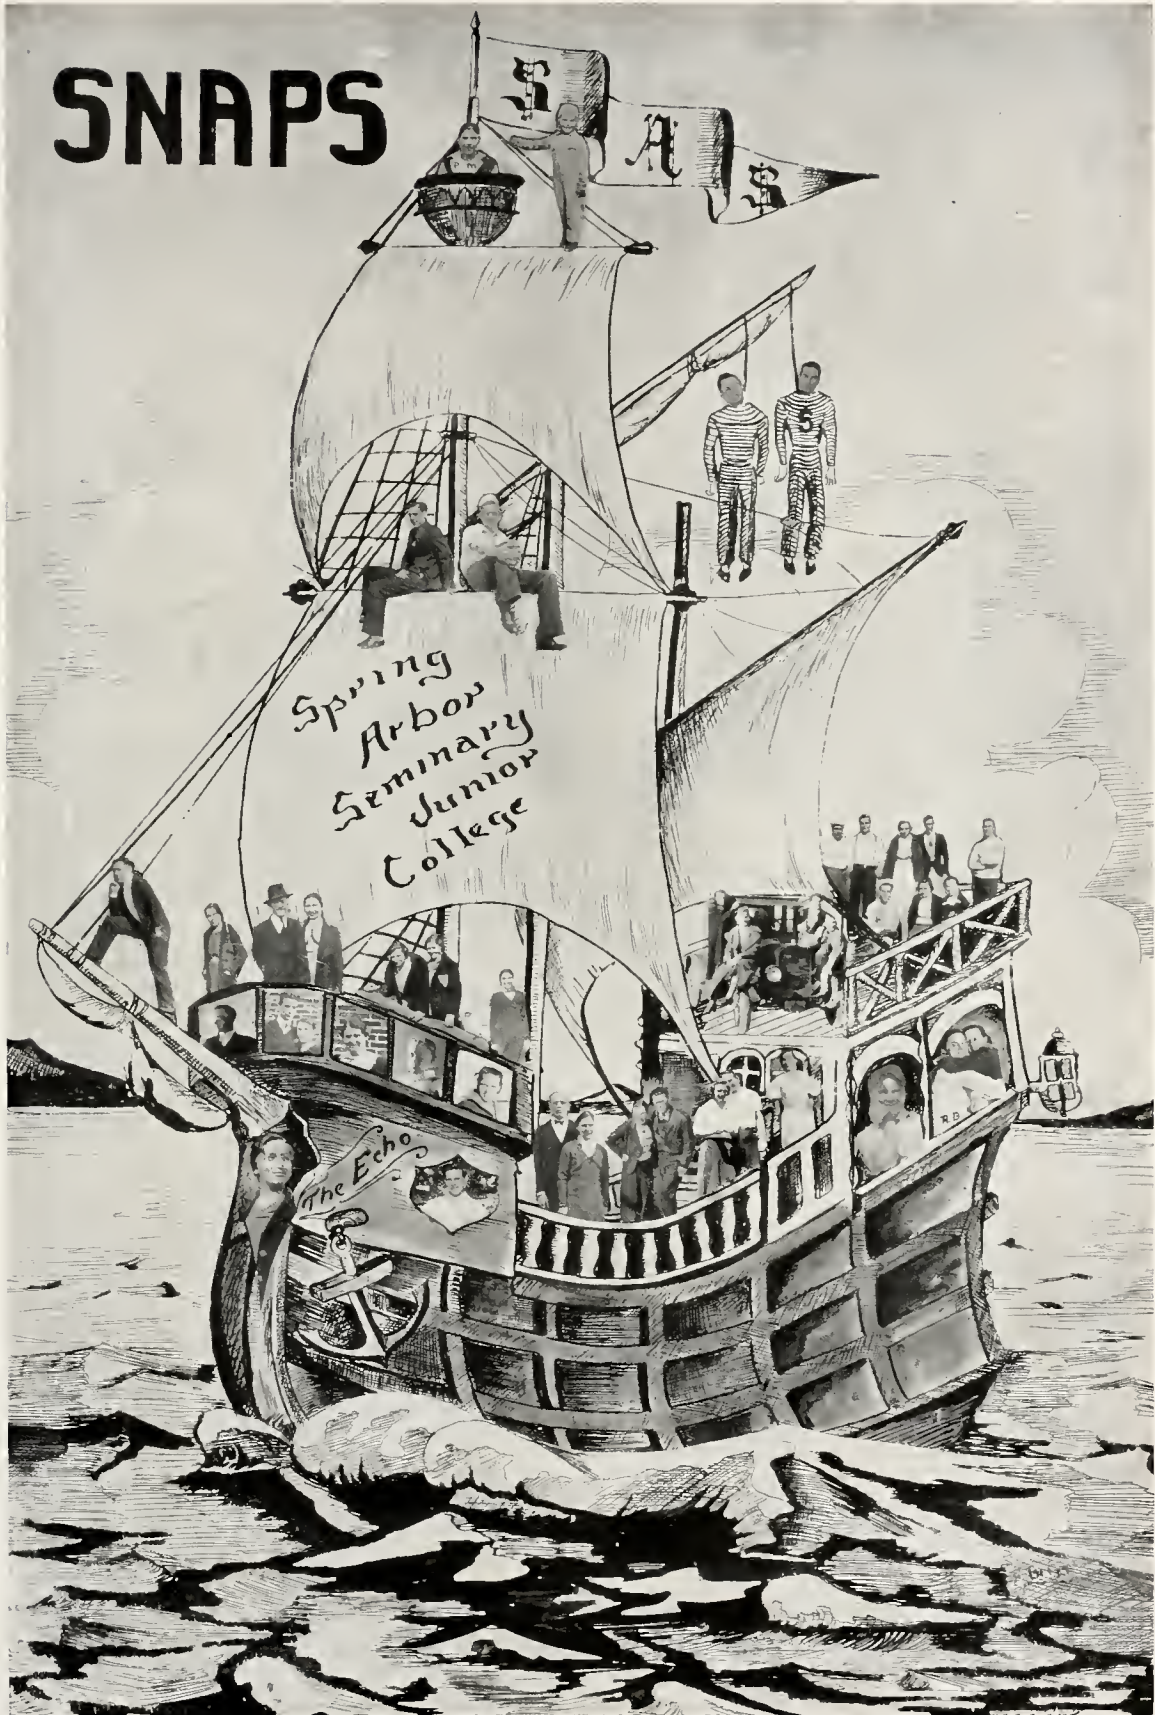 SNAPS
S
A
S
P M
S
Spring
Arbor
Seminary
Junior
College
The Echo
R.B.